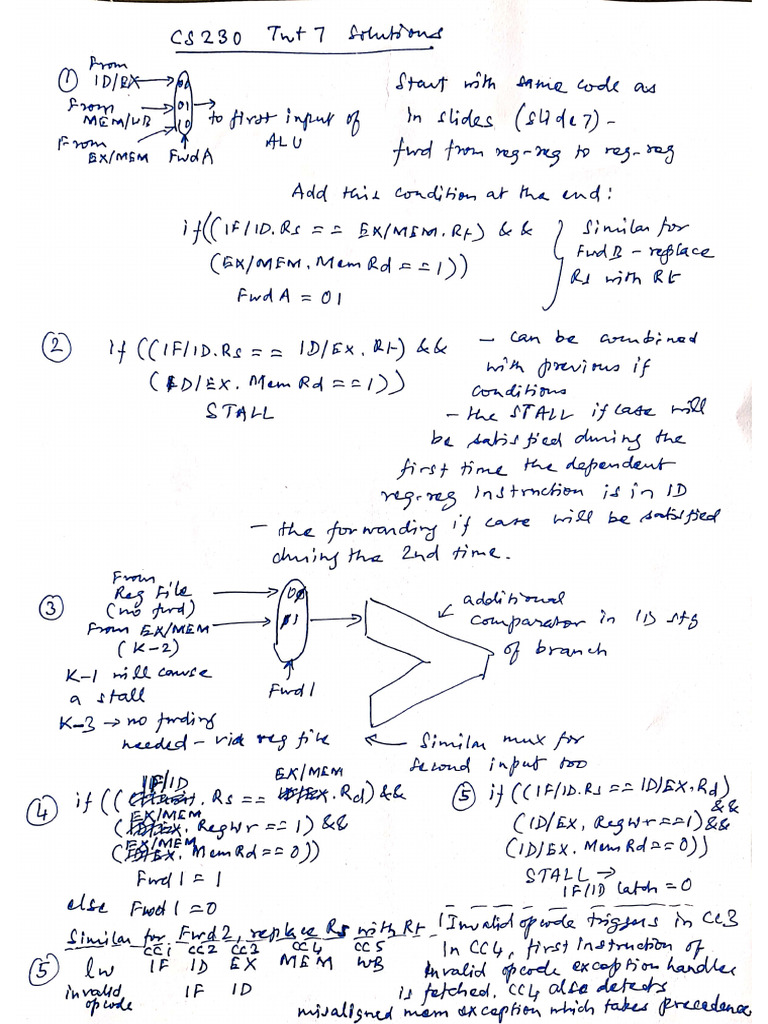 CS230 Tut 7 Solutions
① From
ID/EX 00
From 01
MEM/WB 10
From
EX/MEM FwdA
to first input of
ALU
Start with same code as
in slides (slide 7) -
fwd from reg-reg to reg-reg
Add this condition at the end:
if((IF/ID.Rs == EX/MEM.Rt) &&
(EX/MEM.MemRd==1))
FwdA = 01
Similar for
FwdB - replace
Rs with Rt
② if((IF/ID.Rs == ID/EX.Rt) &&
(ID/EX.MemRd==1))
STALL
- can be combined
with previous if
conditions
- the STALL if case will
be satisfied during the
first time the dependent
reg-reg instruction is in ID
- the forwarding if case will be satisfied
during the 2nd time.
③ From
Reg File
(no fwd)
From EX/MEM
(K-2)
K-1 will cause
a stall
K-3 → no fwding
needed - via reg file
Fwd1
additional
comparator in ID stg
of branch
Similar mux for
second input too
④ if((IF/ID.Rs == EX/MEM.Rd) &&
(EX/MEM.RegWr==1) &&
(EX/MEM.MemRd==0))
Fwd1 = 1
else Fwd1=0
Similar for Fwd2, replace Rs with Rt
⑤ if((IF/ID.Rs == ID/EX.Rd)
&&
(ID/EX.RegWr==1)&&
(ID/EX.MemRd==0))
STALL →
IF/ID latch=0
CC1 CC2 CC3 CC4 CC5
⑤ lw IF ID EX MEM WB
invalid IF ID
opcode
Invalid opcode triggers in CC3
In CC4, first instruction of
invalid opcode exception handler
is fetched. CC4 also detects
misaligned mem exception which takes precedence